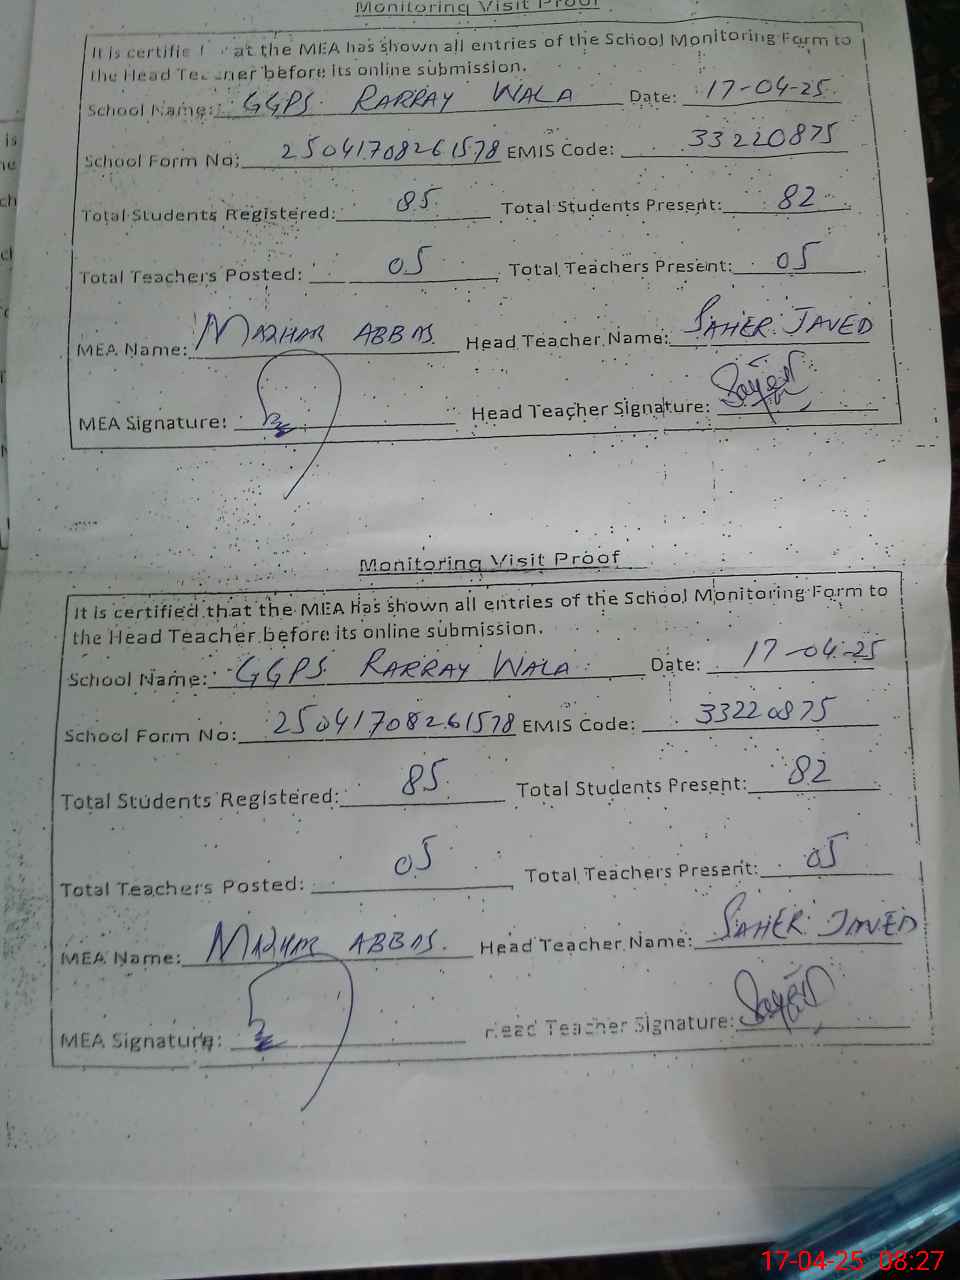 Monitoring Visit Proof
It is certifie at the MEA has shown all entries of the School Monitoring Form to
the Head Teacher before its online submission.
School Name: GGPS RARRAY WALA Date: 17-04-25
School Form No: 25041708261578 EMIS Code: 33220875
Total Students Registered: 85 Total Students Present: 82
Total Teachers Posted: 05 Total Teachers Present: 05
MEA Name: MAZHAR ABBAS. Head Teacher Name: SAHER JAVED
MEA Signature: Head Teacher Signature:
Monitoring Visit Proof
It is certified that the MEA has shown all entries of the School Monitoring Form to
the Head Teacher before its online submission.
School Name: GGPS RARRAY WALA Date: 17-04-25
School Form No: 25041708261578 EMIS Code: 33220875
Total Students Registered: 85 Total Students Present: 82
Total Teachers Posted: 05 Total Teachers Present: 05
MEA Name: MAZHAR ABBAS. Head Teacher Name: SAHER JAVED
MEA Signature: Head Teacher Signature:
17-04-25 08:27